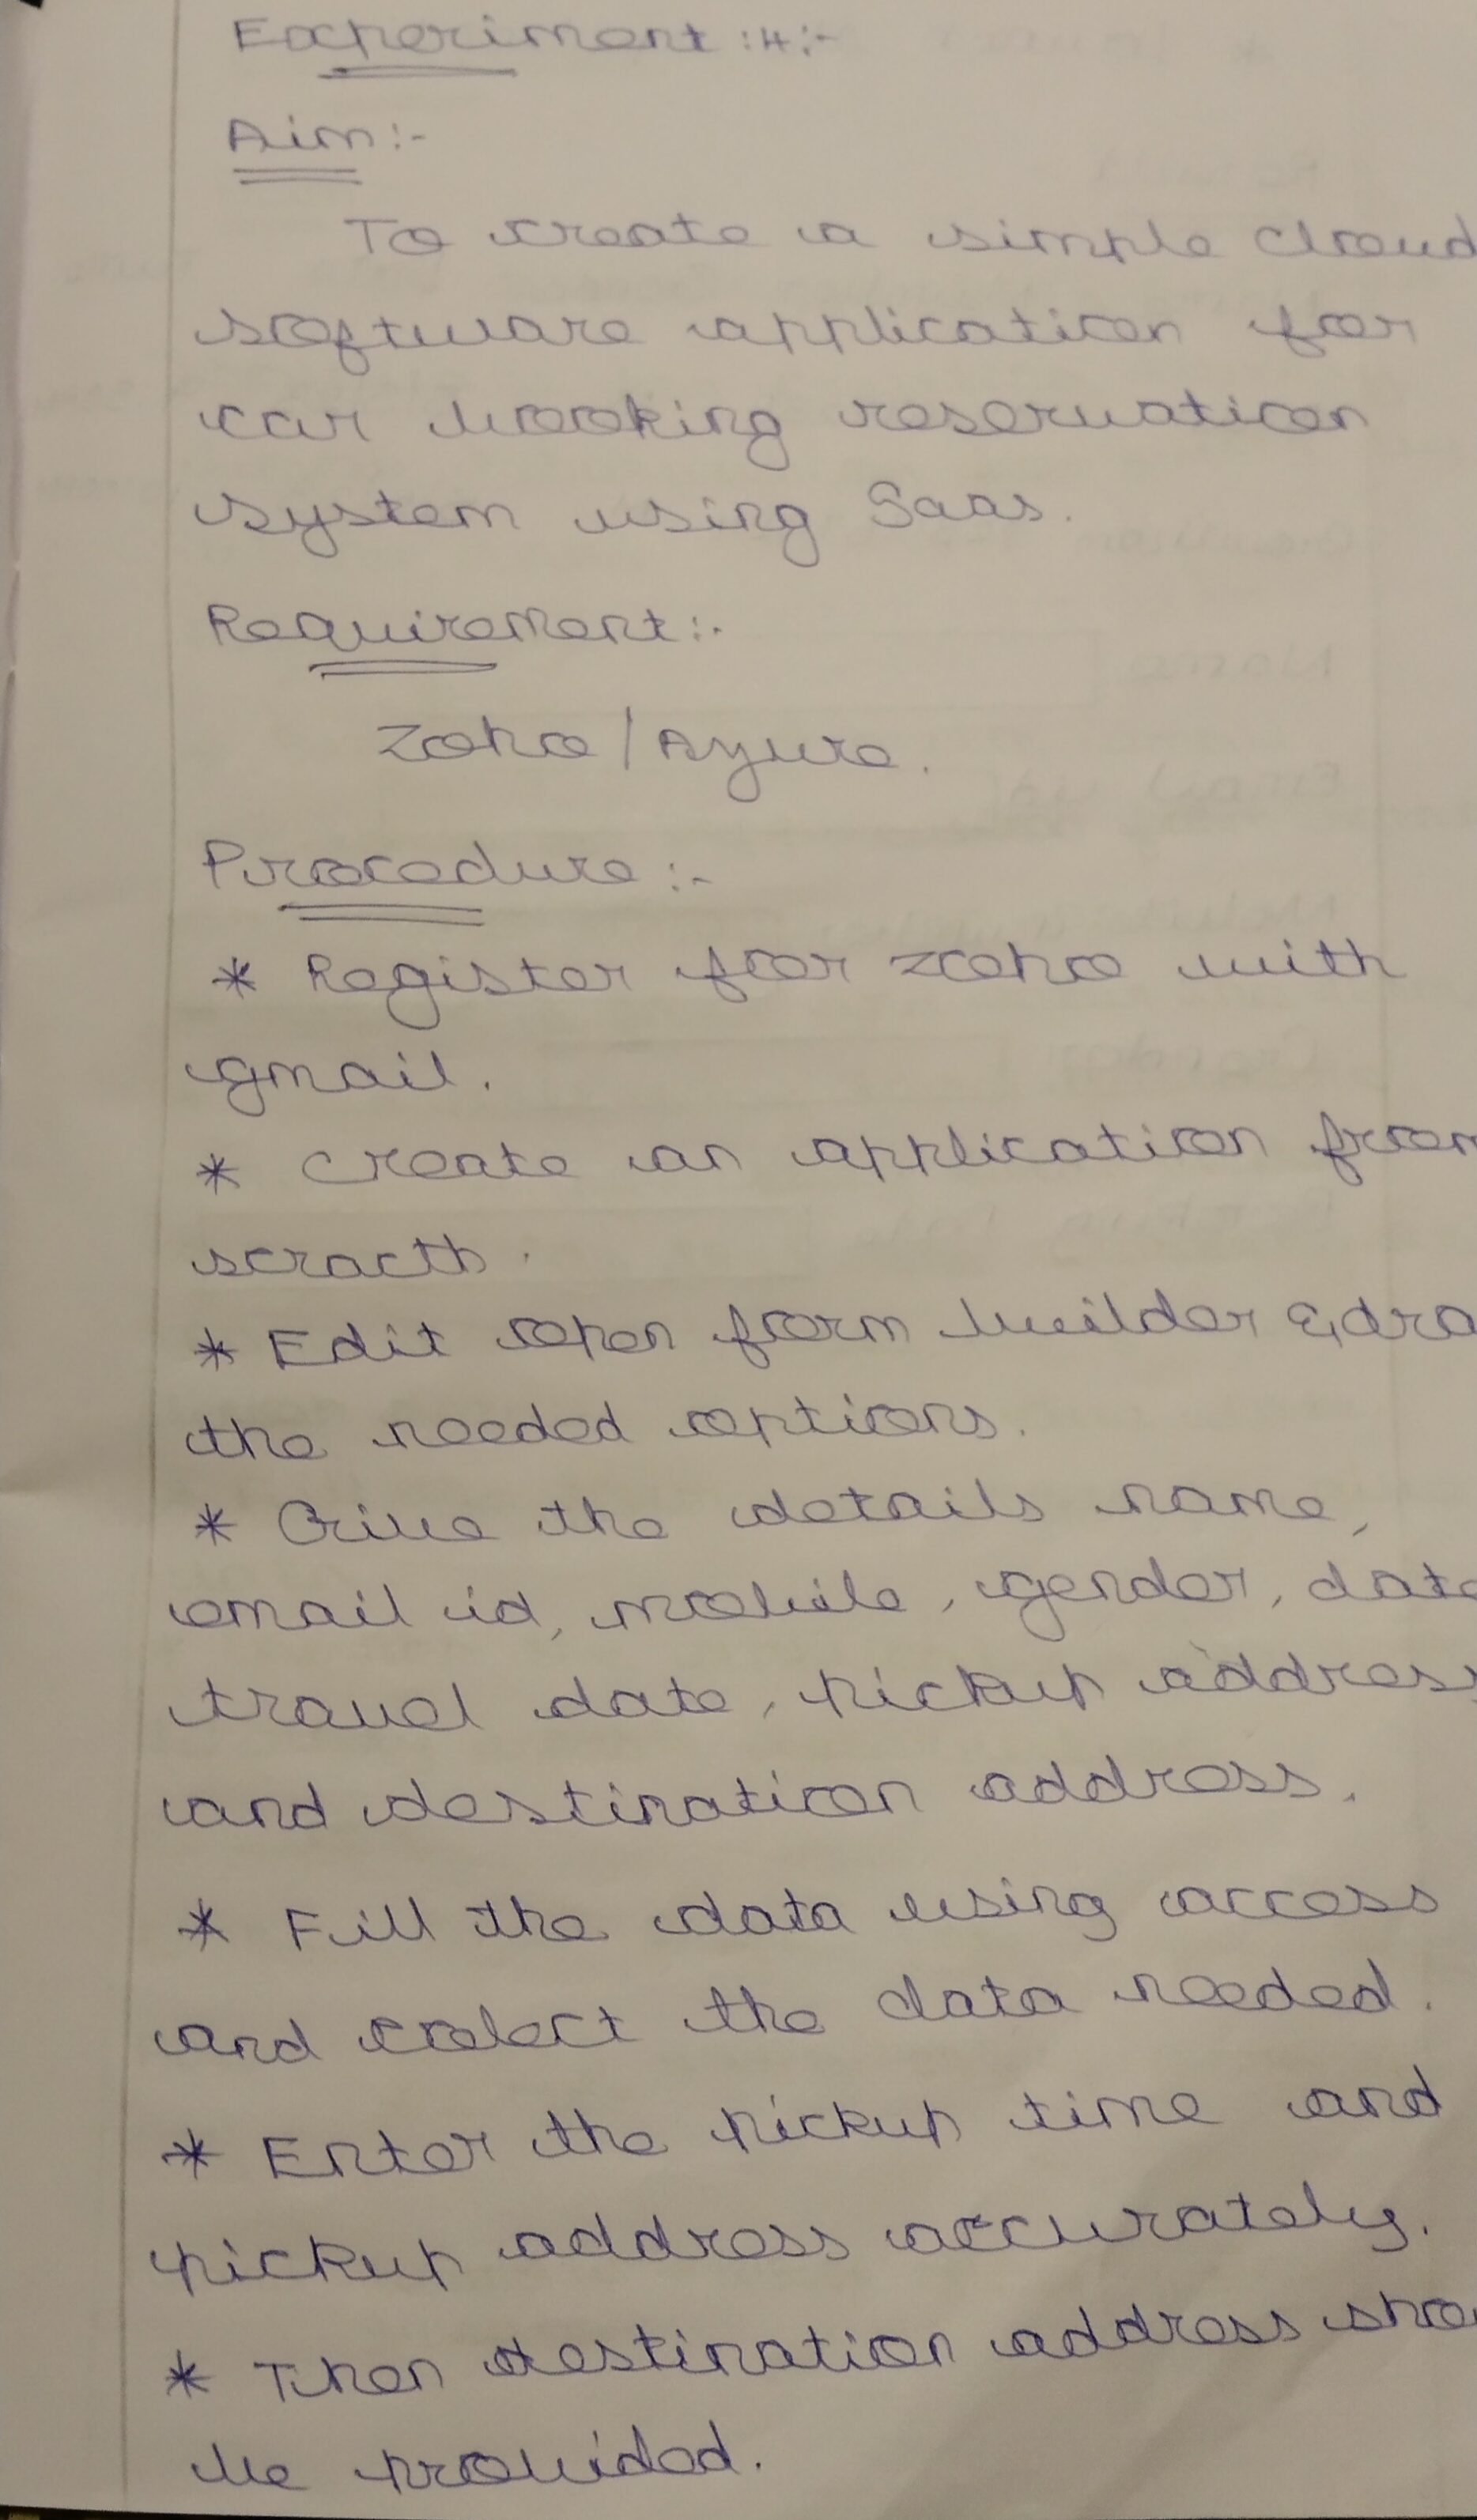 Experiment :4:-
Aim:-
To create a simple cloud
software application for
car booking reservation
system using Saas.
Requirement:-
Zoho / Azure.
Procedure :-
* Register for zoho with
gmail.
* Create an application from
scracth.
* Edit open form builder & dra
the needed options.
* Give the details name,
email id, mobile, gender, date
travel date, pickup address
and destination address.
* Fill the data using access
and colect the data needed.
* Enter the pickup time and
pickup address accurately.
* Then destination address sho
be provided.